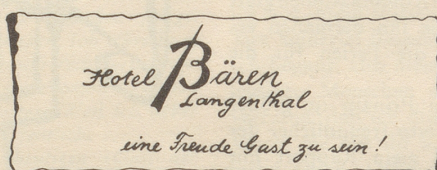 Hotel Bären
Langenthal
eine Freude Gast zu sein!